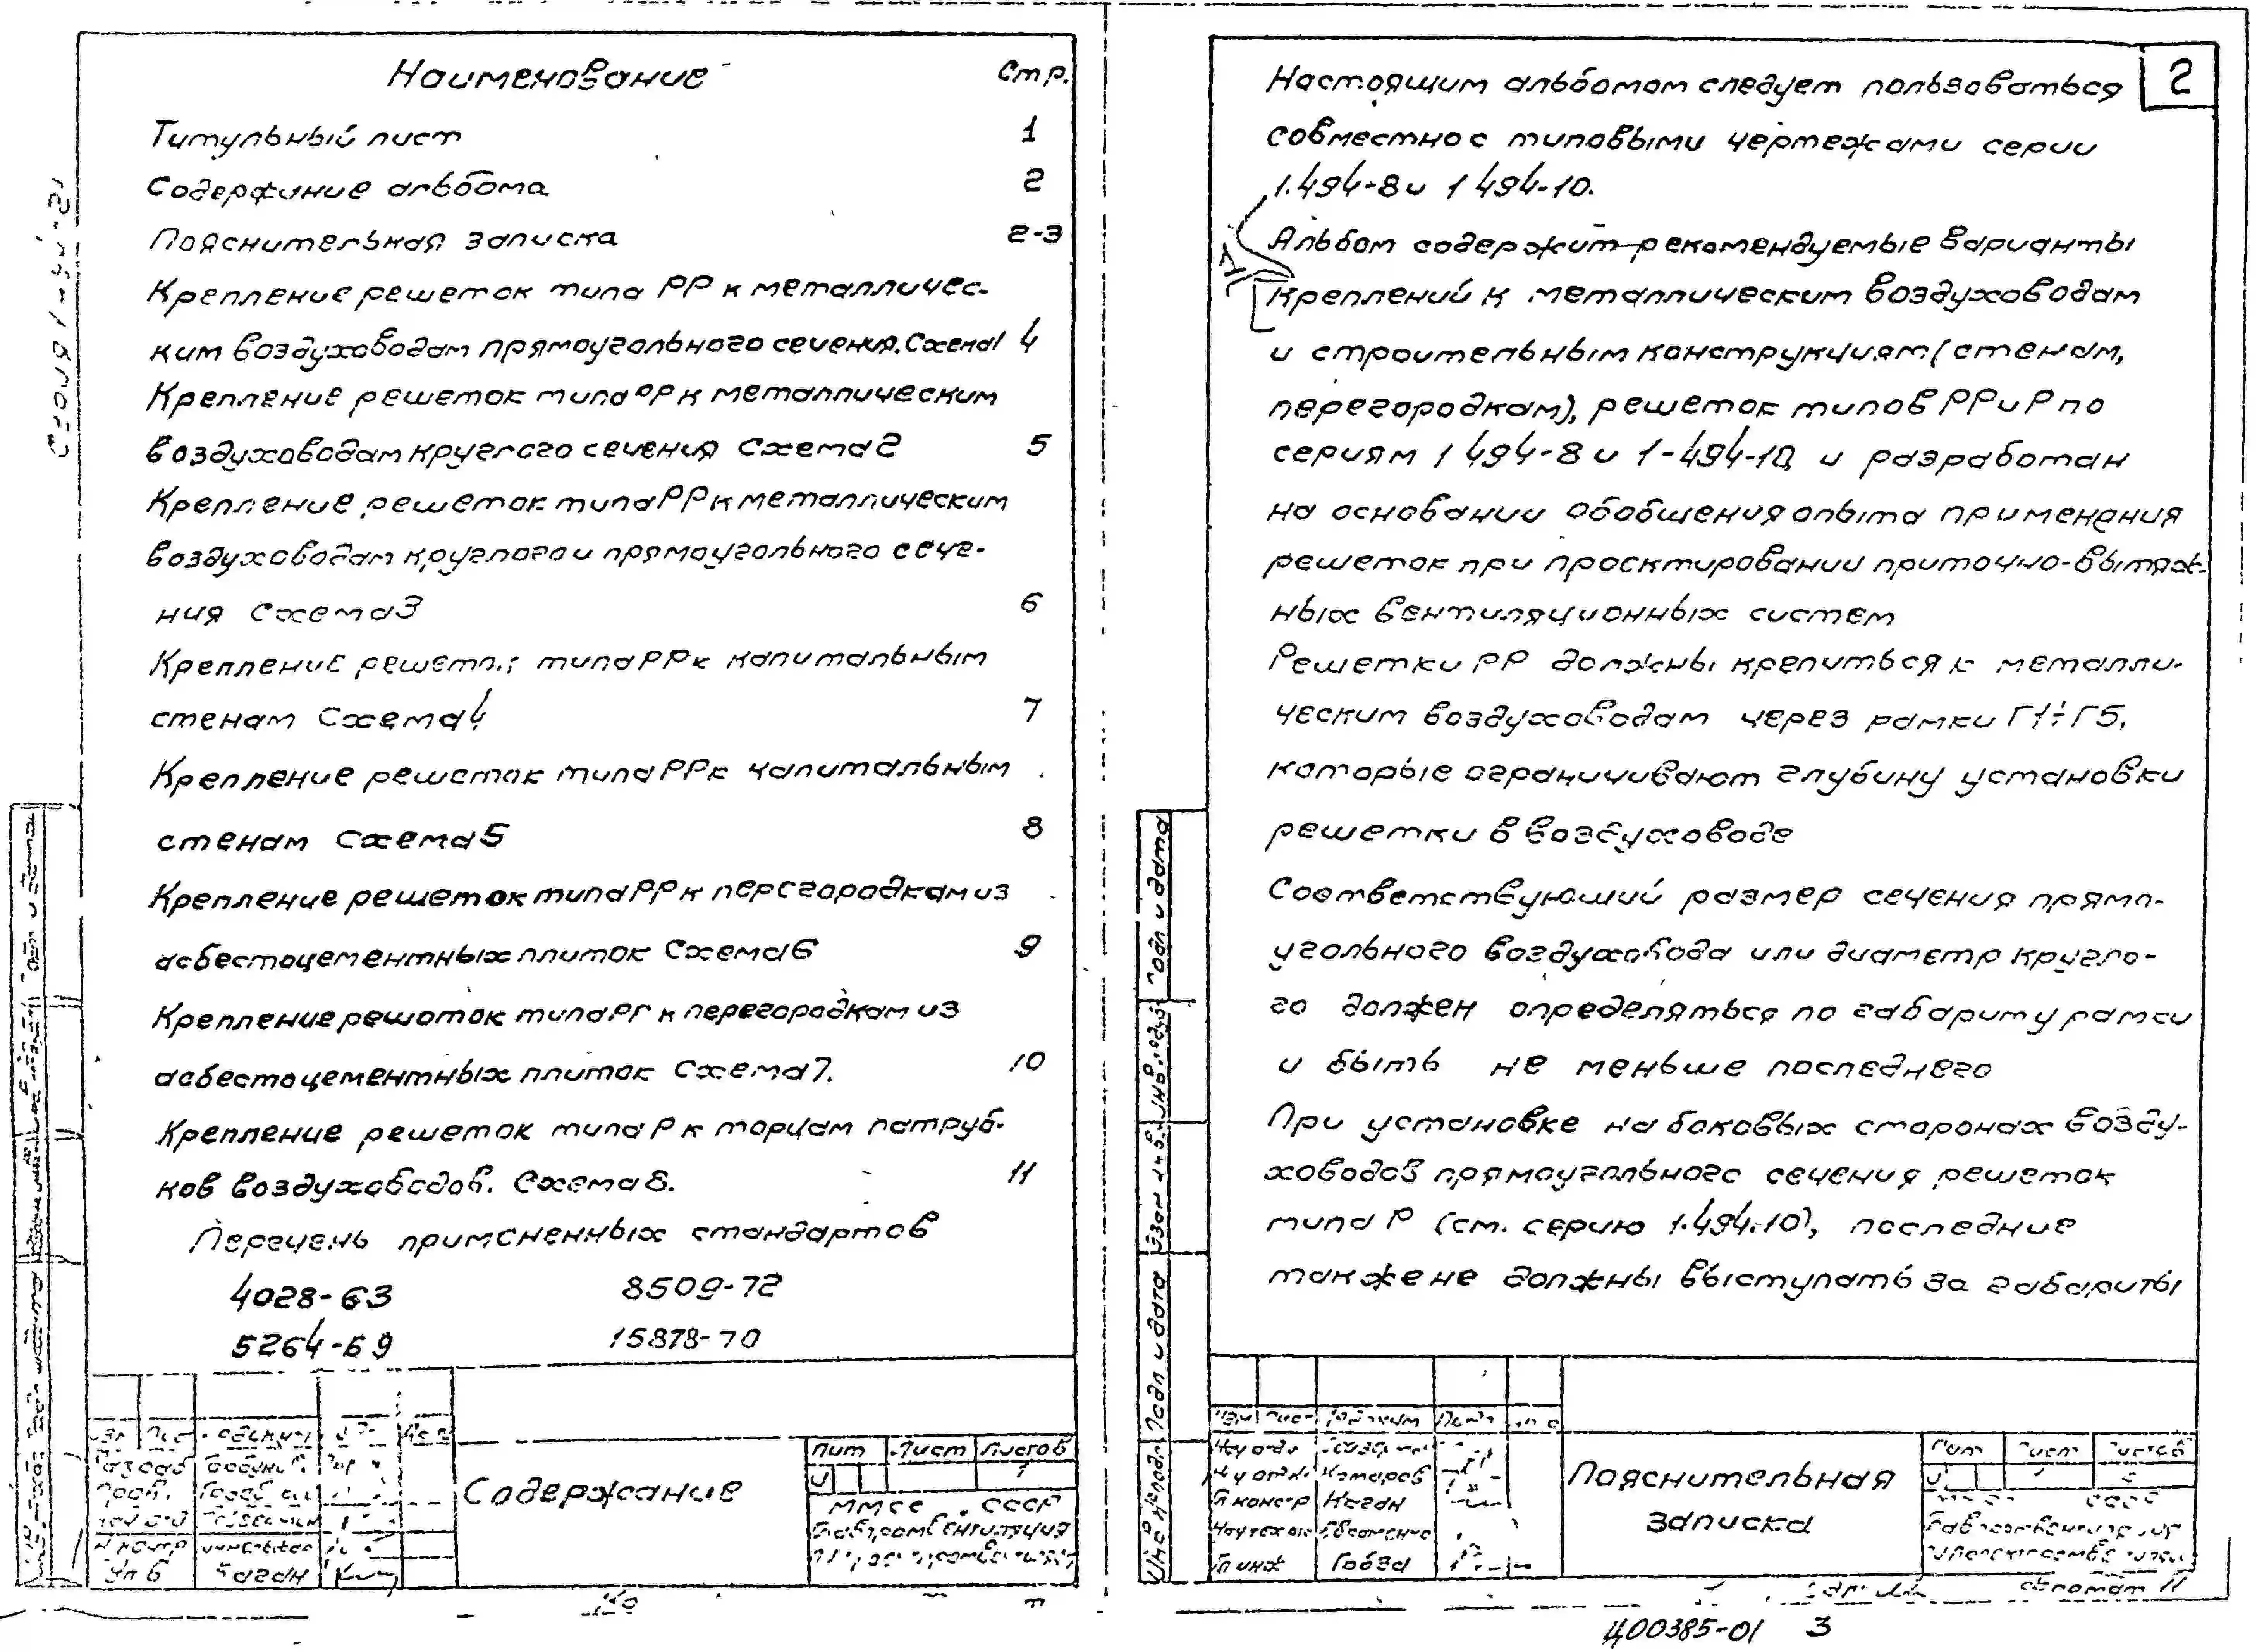 Наименование Стр.
Титульный лист 1
Содержание альбома 2
Пояснительная записка 2-3
Крепление решеток типа РР к металличес-
ким воздуховодам прямоугольного сечения. Схема 1 4
Крепление решеток типа РР к металлическим
воздуховодам круглого сечения Схема 2 5
Крепление решеток типа РР к металлическим
воздуховодам круглого и прямоугольного сече-
ния Схема 3 6
Крепление типа РР к капитальным
стенам Схема 4 7
Крепление решеток типа РР к капитальным
стенам Схема 5 8
Крепление решеток типа РР к перегородкам из
асбестоцементных плиток Схема 6 9
Крепление решеток типа РР к перегородкам из
асбестоцементных плиток Схема 7. 10
Крепление решеток типа Р к торцам патруб-
ков воздуховодов. Схема 8. 11
Перечень примененных стандартов
4028-63 8509-72
5264-69 15878-70
Содержание
Лит Лист Листов
1
ММСС СССР
Каган
2
Настоящим альбомом следует пользоваться
совместно с типовыми чертежами серии
1.494-8 и 1 494-10.
Альбом содержит рекомендуемые варианты
креплений к металлическим воздуховодам
и строительным конструкциям (стенам,
перегородкам), решеток типов РР и Р по
сериям 1 494-8 и 1-494-10 и разработан
на основании обобщения опыта применения
решеток при проектировании приточно-вытяж-
ных вентиляционных систем
Решетки РР должны крепиться к металли-
ческим воздуховодам через рамки Г1÷Г5,
которые ограничивают глубину установки
решетки в воздуховоде
Соответствующий размер сечения прямо-
угольного воздуховода или диаметр кругло-
го должен определяться по габариту рамки
и быть не меньше последнего
При установке на боковых сторонах возду-
ховодов прямоугольного сечения решеток
типа Р (см. серию 1.494-10), последние
также не должны выступать за габариты
Подп и дата
Взам инв.
Подп и дата
Комаров
Каган
Пояснительная
записка
Лит Лист Листов
СССР
Формат 11
400385-01 3